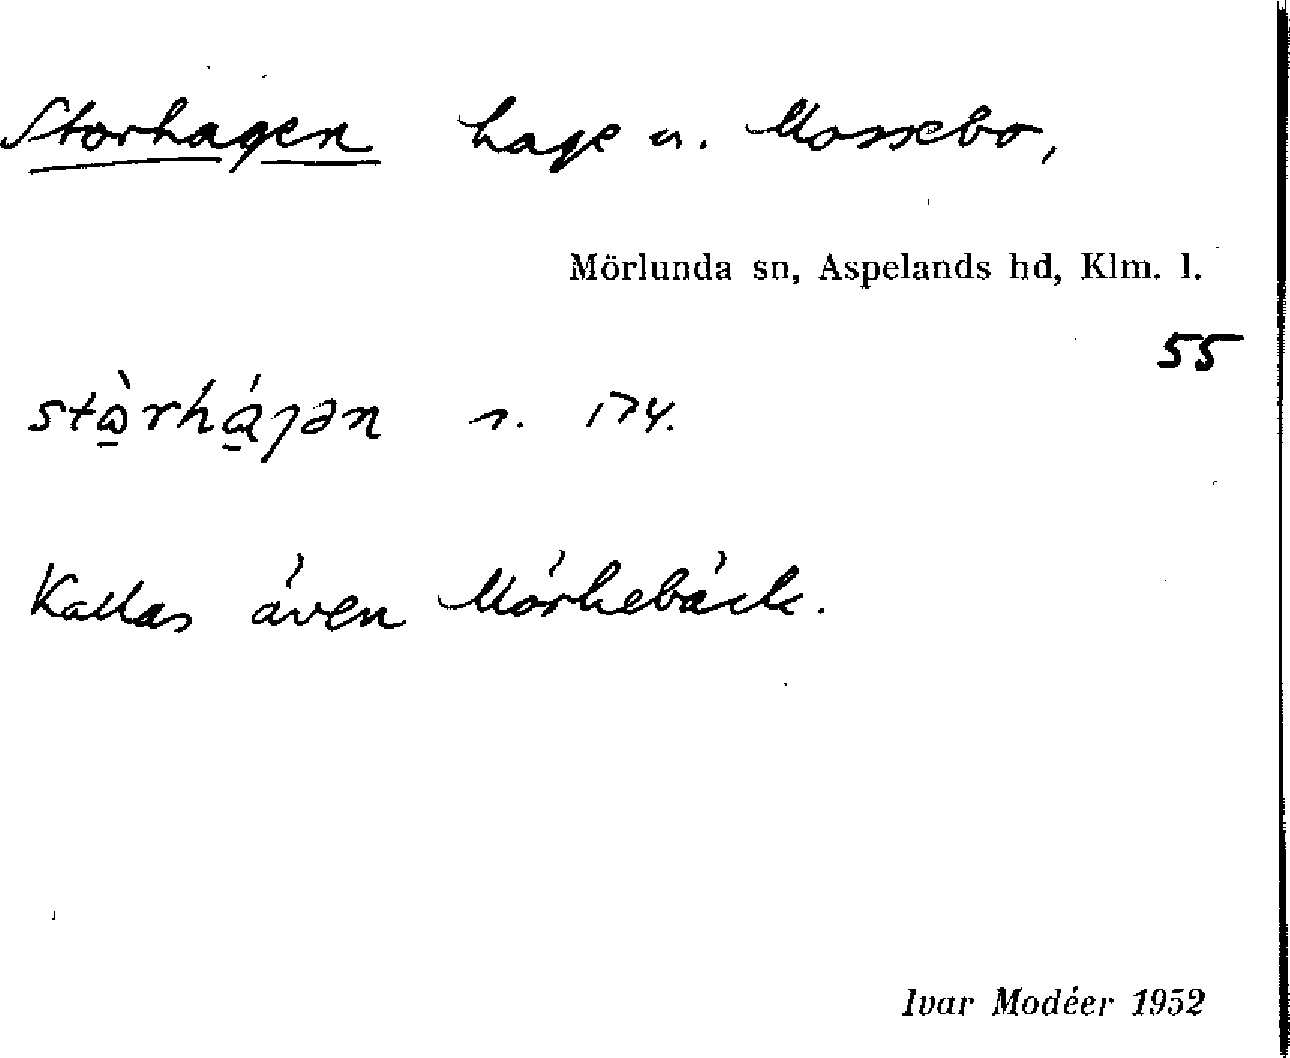 Storhagen hage u. Mossebo,
Mörlunda sn, Aspelands hd, Klm. l.
55
stὼ̠rhɑ̠́ȷən s. 174.
Kallas även Mörkebäck.
Ivar Modéer 1952